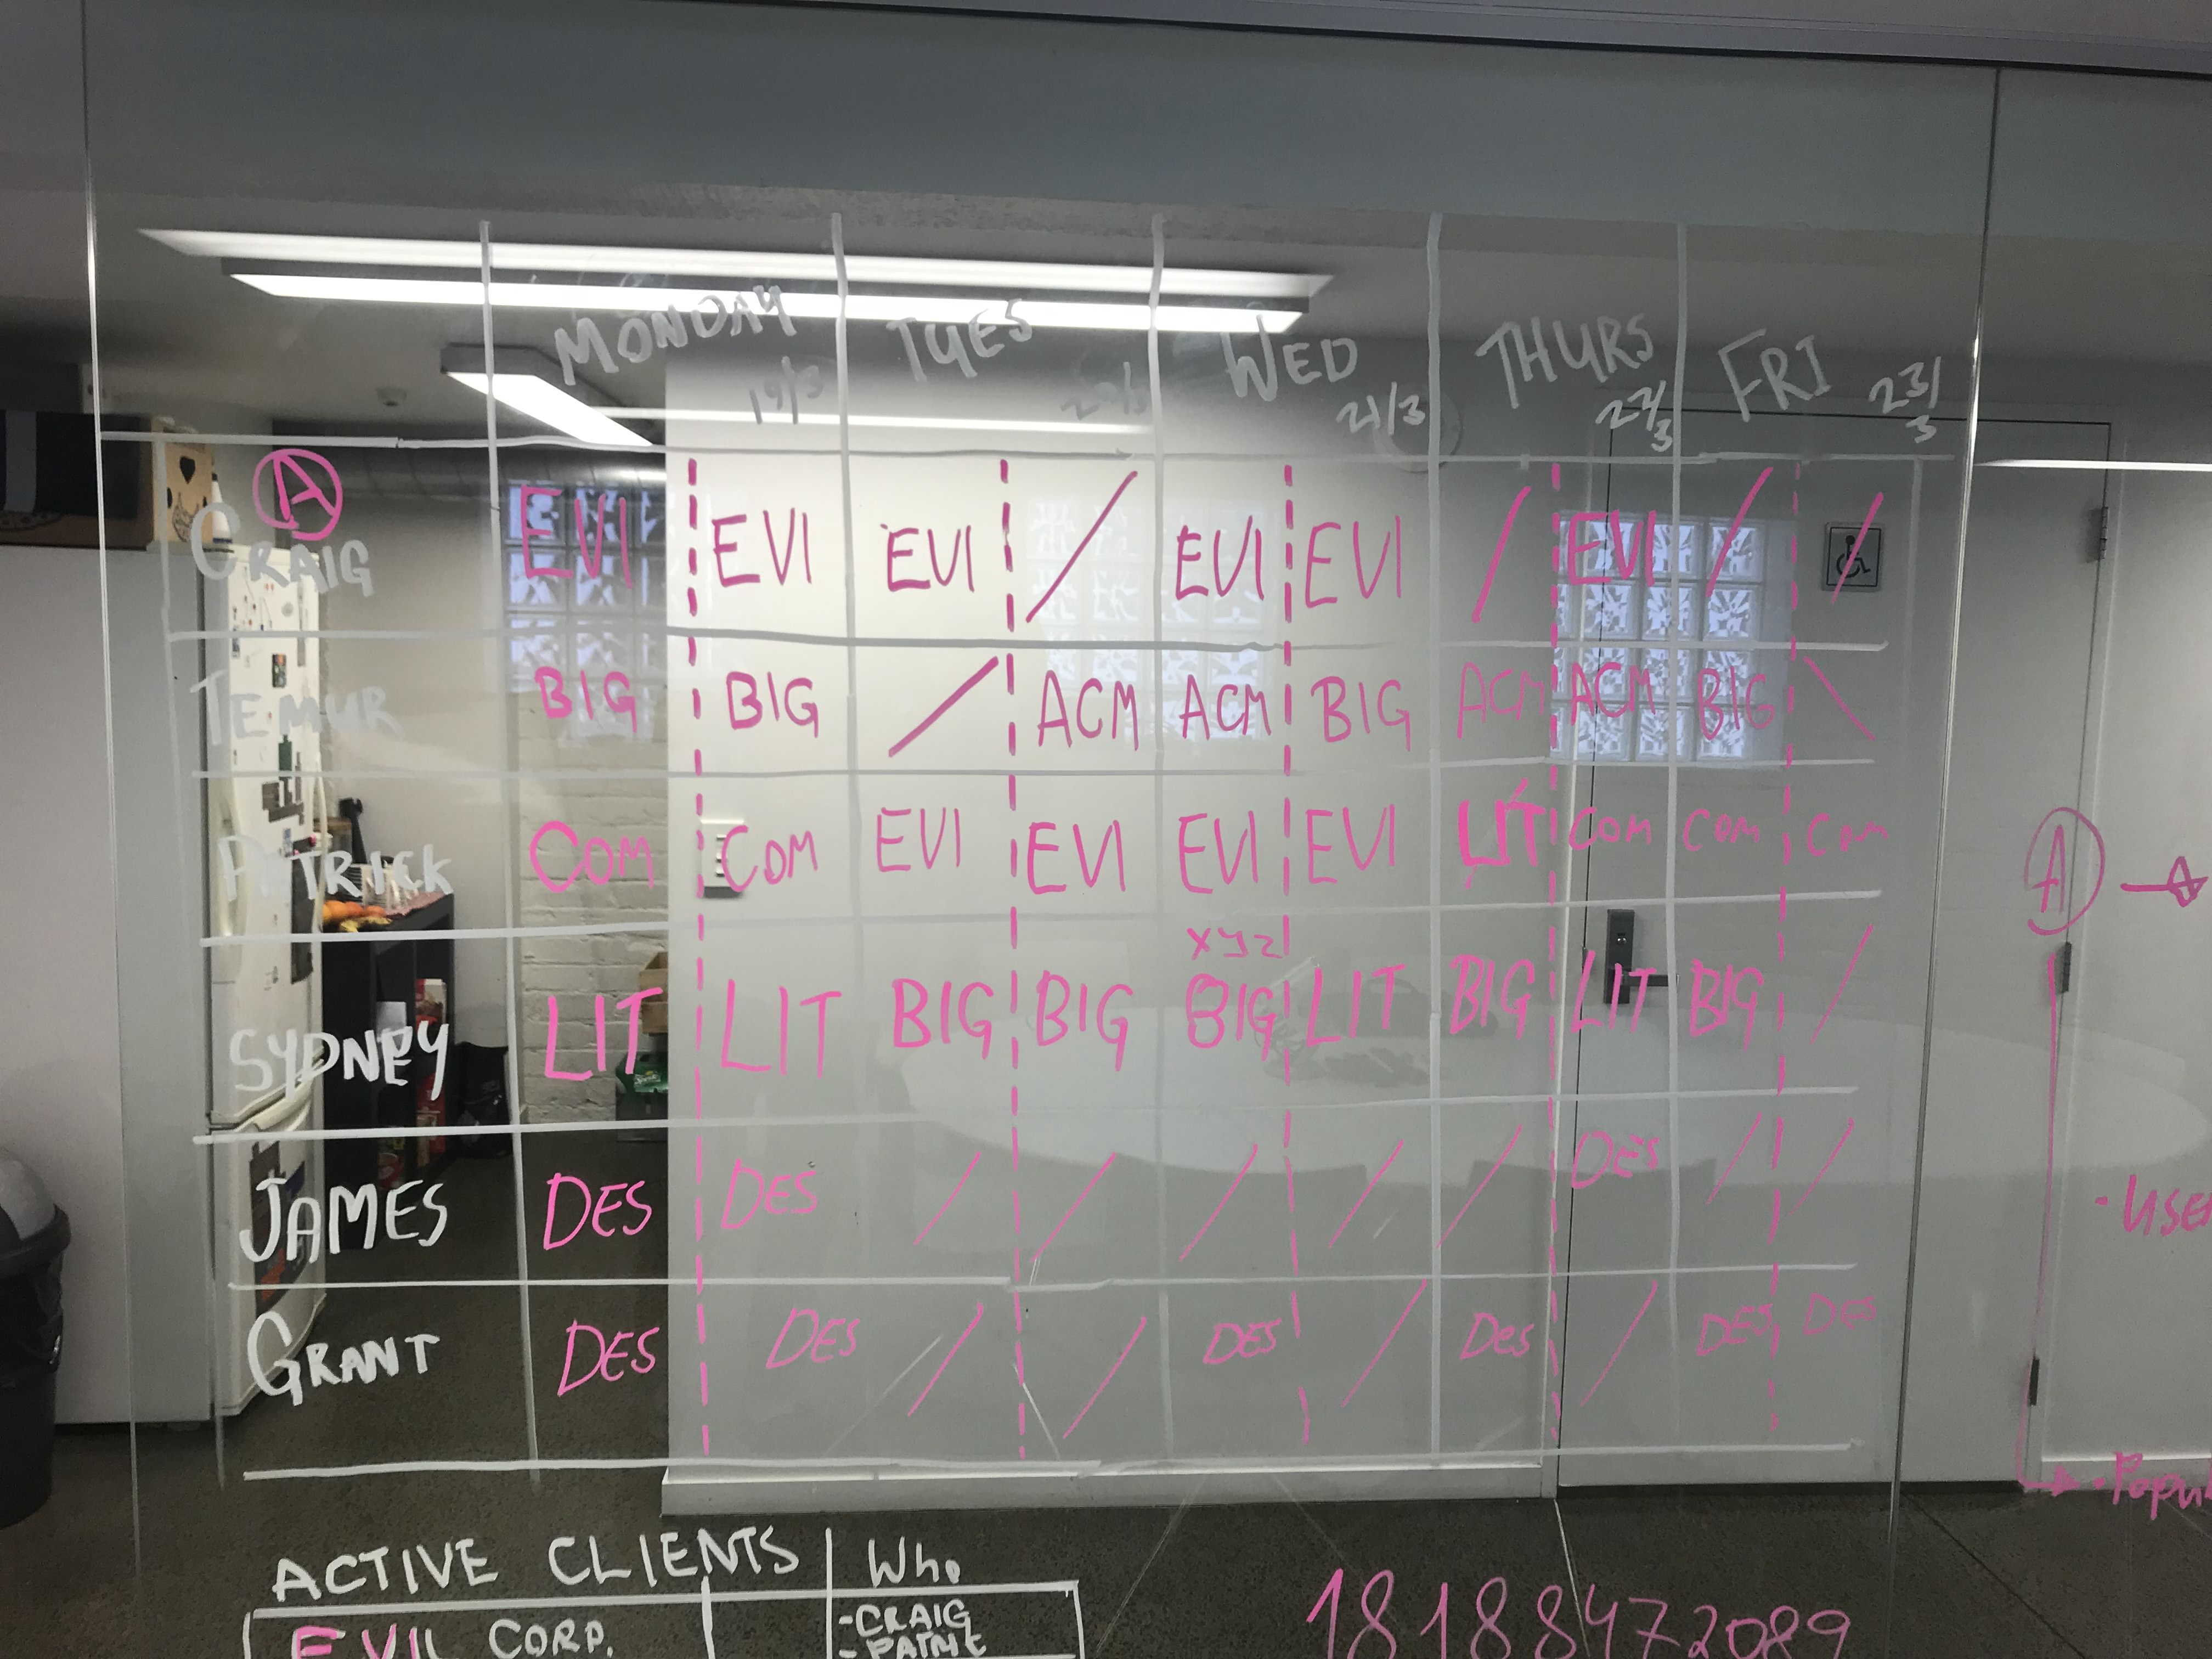 MONDAY TUES WED THURS FRI
19/3 20/3 21/3 22/3 23/3
A
CRAIG EVI EVI EVI / EVI EVI / EVI / /
TEMUR BIG BIG / ACM ACM BIG ACM ACM BIG \
PATRICK COM COM EVI EVI EVI EVI LIT COM COM COM
xyz
SYDNEY LIT LIT BIG BIG BIG LIT BIG LIT BIG /
JAMES DES DES / / / / / DES / /
GRANT DES DES / / DES / DES / DES DES
A
ACTIVE CLIENTS Who
EVIL CORP. -CRAIG
18188472089